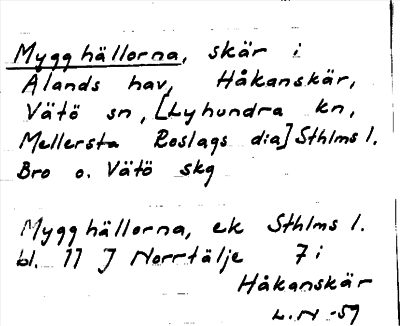 Mygghällorna, skär i
Ålands hav, Håkanskär,
Vätö sn, [Lyhundra kn,
Mellersta Roslags dia] Sthlms l.
Bro o. Vätö skg
Mygghällorna, ek Sthlms l.
bl. 11 J Norrtälje 7 i
Håkanskär
L.N -59